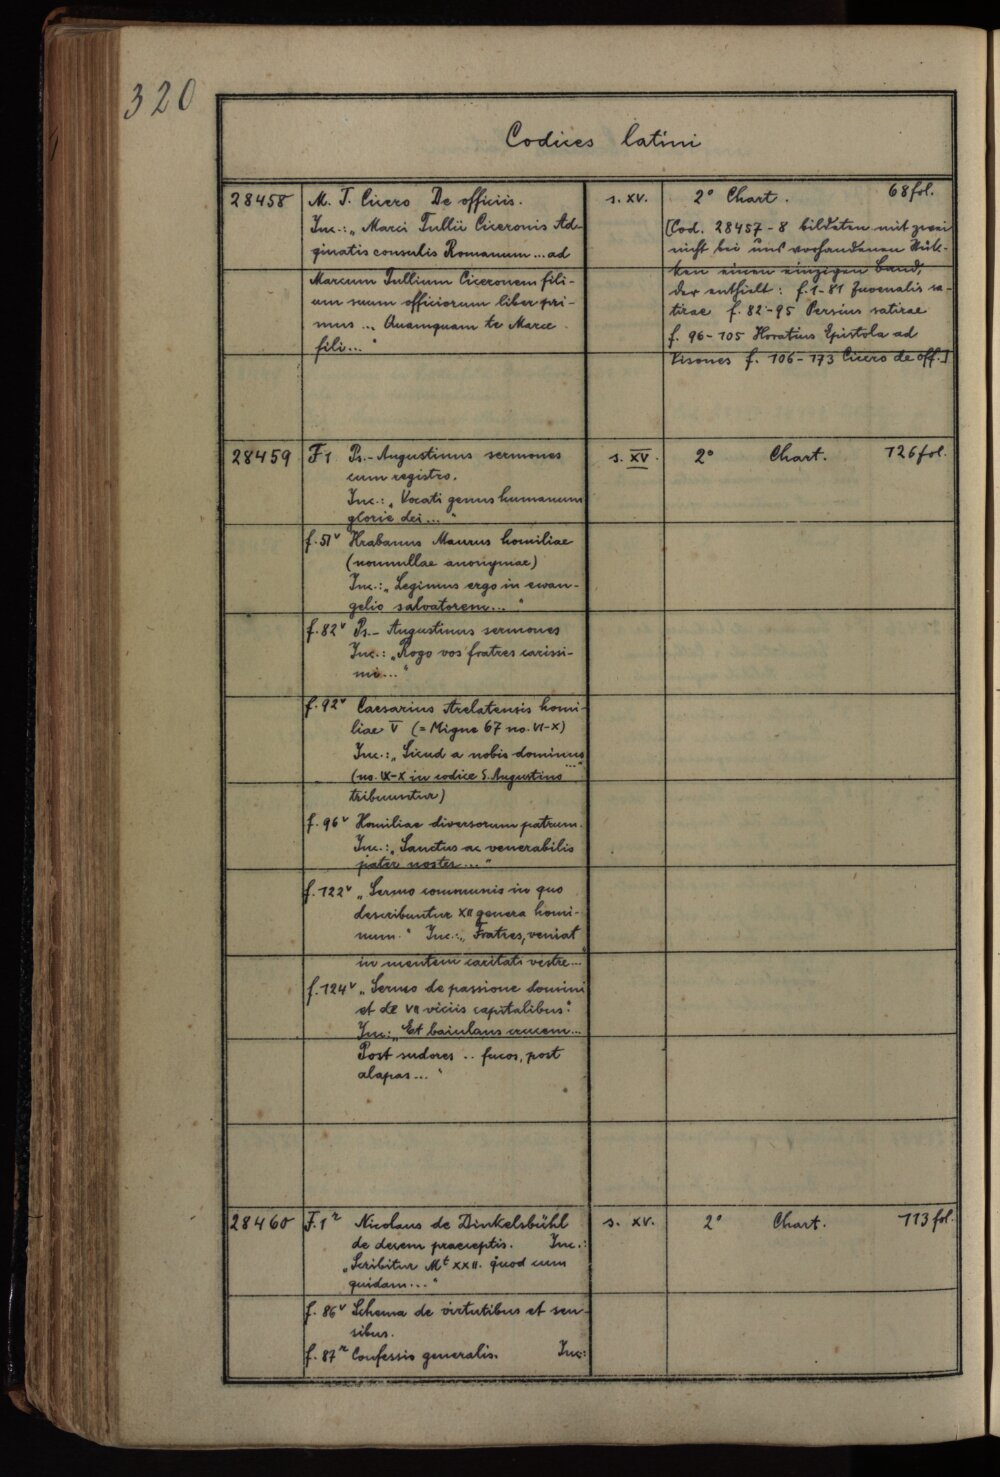 320
Codices latini
28458 M. T. Cicero De officiis. s. XV. 2° Chart. 68 fol.
Inc.: „Marci Tullii Ciceronis Ad-
ginatis consulis Romanum ... ad
Marcum Tullium Ciceronem fili-
um suum officiorum liber pri-
mus ... Quamquam te Marce
fili..."
[Cod. 28457-8 bildeten mit zwei
nicht bei uns vorhandenen Stük-
ken einen einzigen Band,
der enthielt: f. 1-81 Juvenalis sa-
tirae f. 82-95 Persius satirae
f. 96-105 Horatius Epistola ad
Pisones f. 106-173 Cicero de off.]
28459 F 1 Ps.-Augustinus sermones s. XV. 2° Chart. 126 fol.
cum registro.
Inc.: „Vocati genus humanum
glorie dei ..."
f. 51v Hrabanus Maurus homiliae
(nonnullae anonymae)
Inc.: „Legimus ergo in ewan-
gelio salvatorem..."
f. 82v Ps.-Augustinus sermones
Inc.: „Rogo vos fratres carissi-
mi..."
f. 92v Caesarius Arelatensis homi-
liae V (= Migne 67 no. VI-X)
Inc.: „Sicud a nobis dominus ..."
(no. IX-X in codice S. Augustino
tribuuntur)
f. 96v Homiliae diversorum patrum.
Inc.: „Sanctus ac venerabilis
pater noster ..."
f. 122v „Sermo communis in quo
describuntur XII genera homi-
num." Inc.: „Fratres, veniat
in mentem caritati vestre..."
f. 124v „Sermo de passione domini
et de VII viciis capitalibus".
Inc.: „Et baiulans crucem...
Post sudores .. fucos, post
alapas ..."
28460 F. 1r Nicolaus de Dinkelsbühl s. XV. 2° Chart. 113 fol.
de decem praeceptis. Inc.:
„Scribitur Mt XXII. quod cum
quidam..."
f. 86v Schema de virtutibus et sen-
sibus.
f. 87r Confessio generalis. Inc: